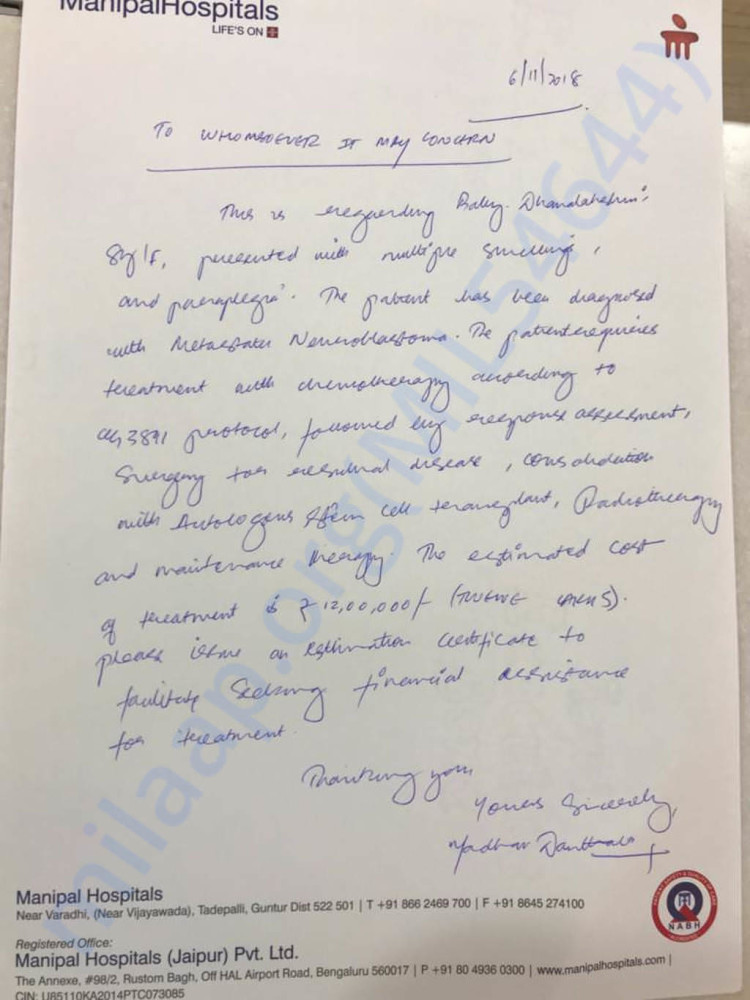 ManipalHospitals
LIFE'S ON
6/11/2018
TO WHOMSOEVER IT MAY CONCERN
This is regarding Baby. Dhanalakshmi,
8y/F, presented with multiple swellings,
and paraplegia. The patient has been diagnosed
with Metastatic Neuroblastoma. The patient requires
treatment with chemotherapy according to
CCG3891 protocol, followed by response assessment,
Surgery for residual disease, consolidation
with Autologous Stem cell transplant, Radiotherapy
and maintenance therapy. The estimated cost
of treatment is ₹ 12,00,000/- (TWELVE LAKHS).
please issue an estimation certificate to
facilitate seeking financial assistance
for treatment.
Thanking you,
Yours Sincerely,
Madhav
milaap.org(MIL54644)
Manipal Hospitals
Near Varadhi, (Near Vijayawada), Tadepalli, Guntur Dist 522 501 | T +91 866 2469 700 | F +91 8645 274100
NABH
Registered Office:
Manipal Hospitals (Jaipur) Pvt. Ltd.
The Annexe, #98/2, Rustom Bagh, Off HAL Airport Road, Bengaluru 560017 | P +91 80 4936 0300 | www.manipalhospitals.com |
CIN: U85110KA2014PTC073085